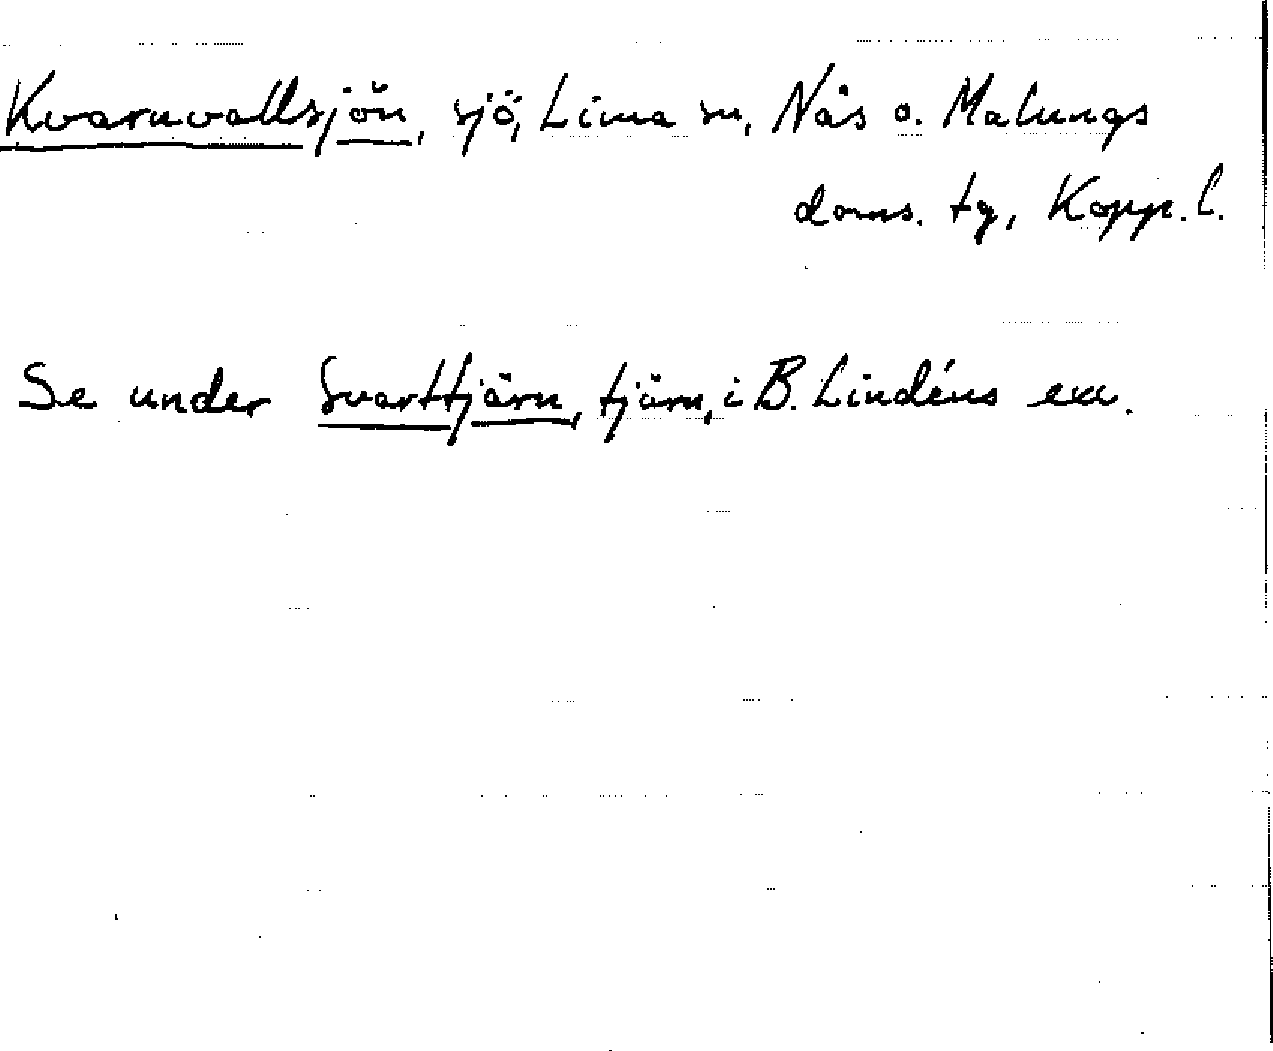 Kvarnvallsjön, sjö, Lima sn, Nås o. Malungs
doms. tg, Kopp. l.
Se under Svarttjärn, tjärn, i B. Lindéns exc.